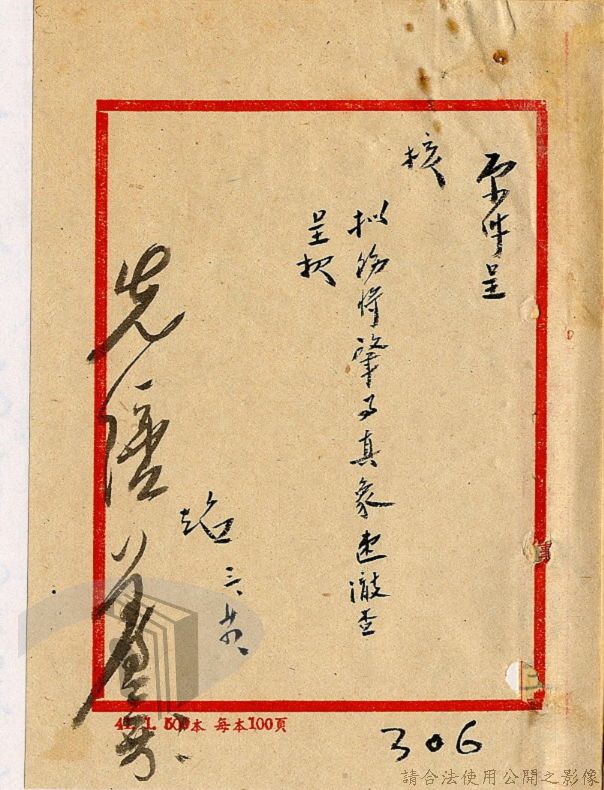 原件呈
核
擬飭將肇事真象速澈查
呈核
三、廿八、
先
41. 1. 500本 每本100頁
306
請合法使用公開之影像